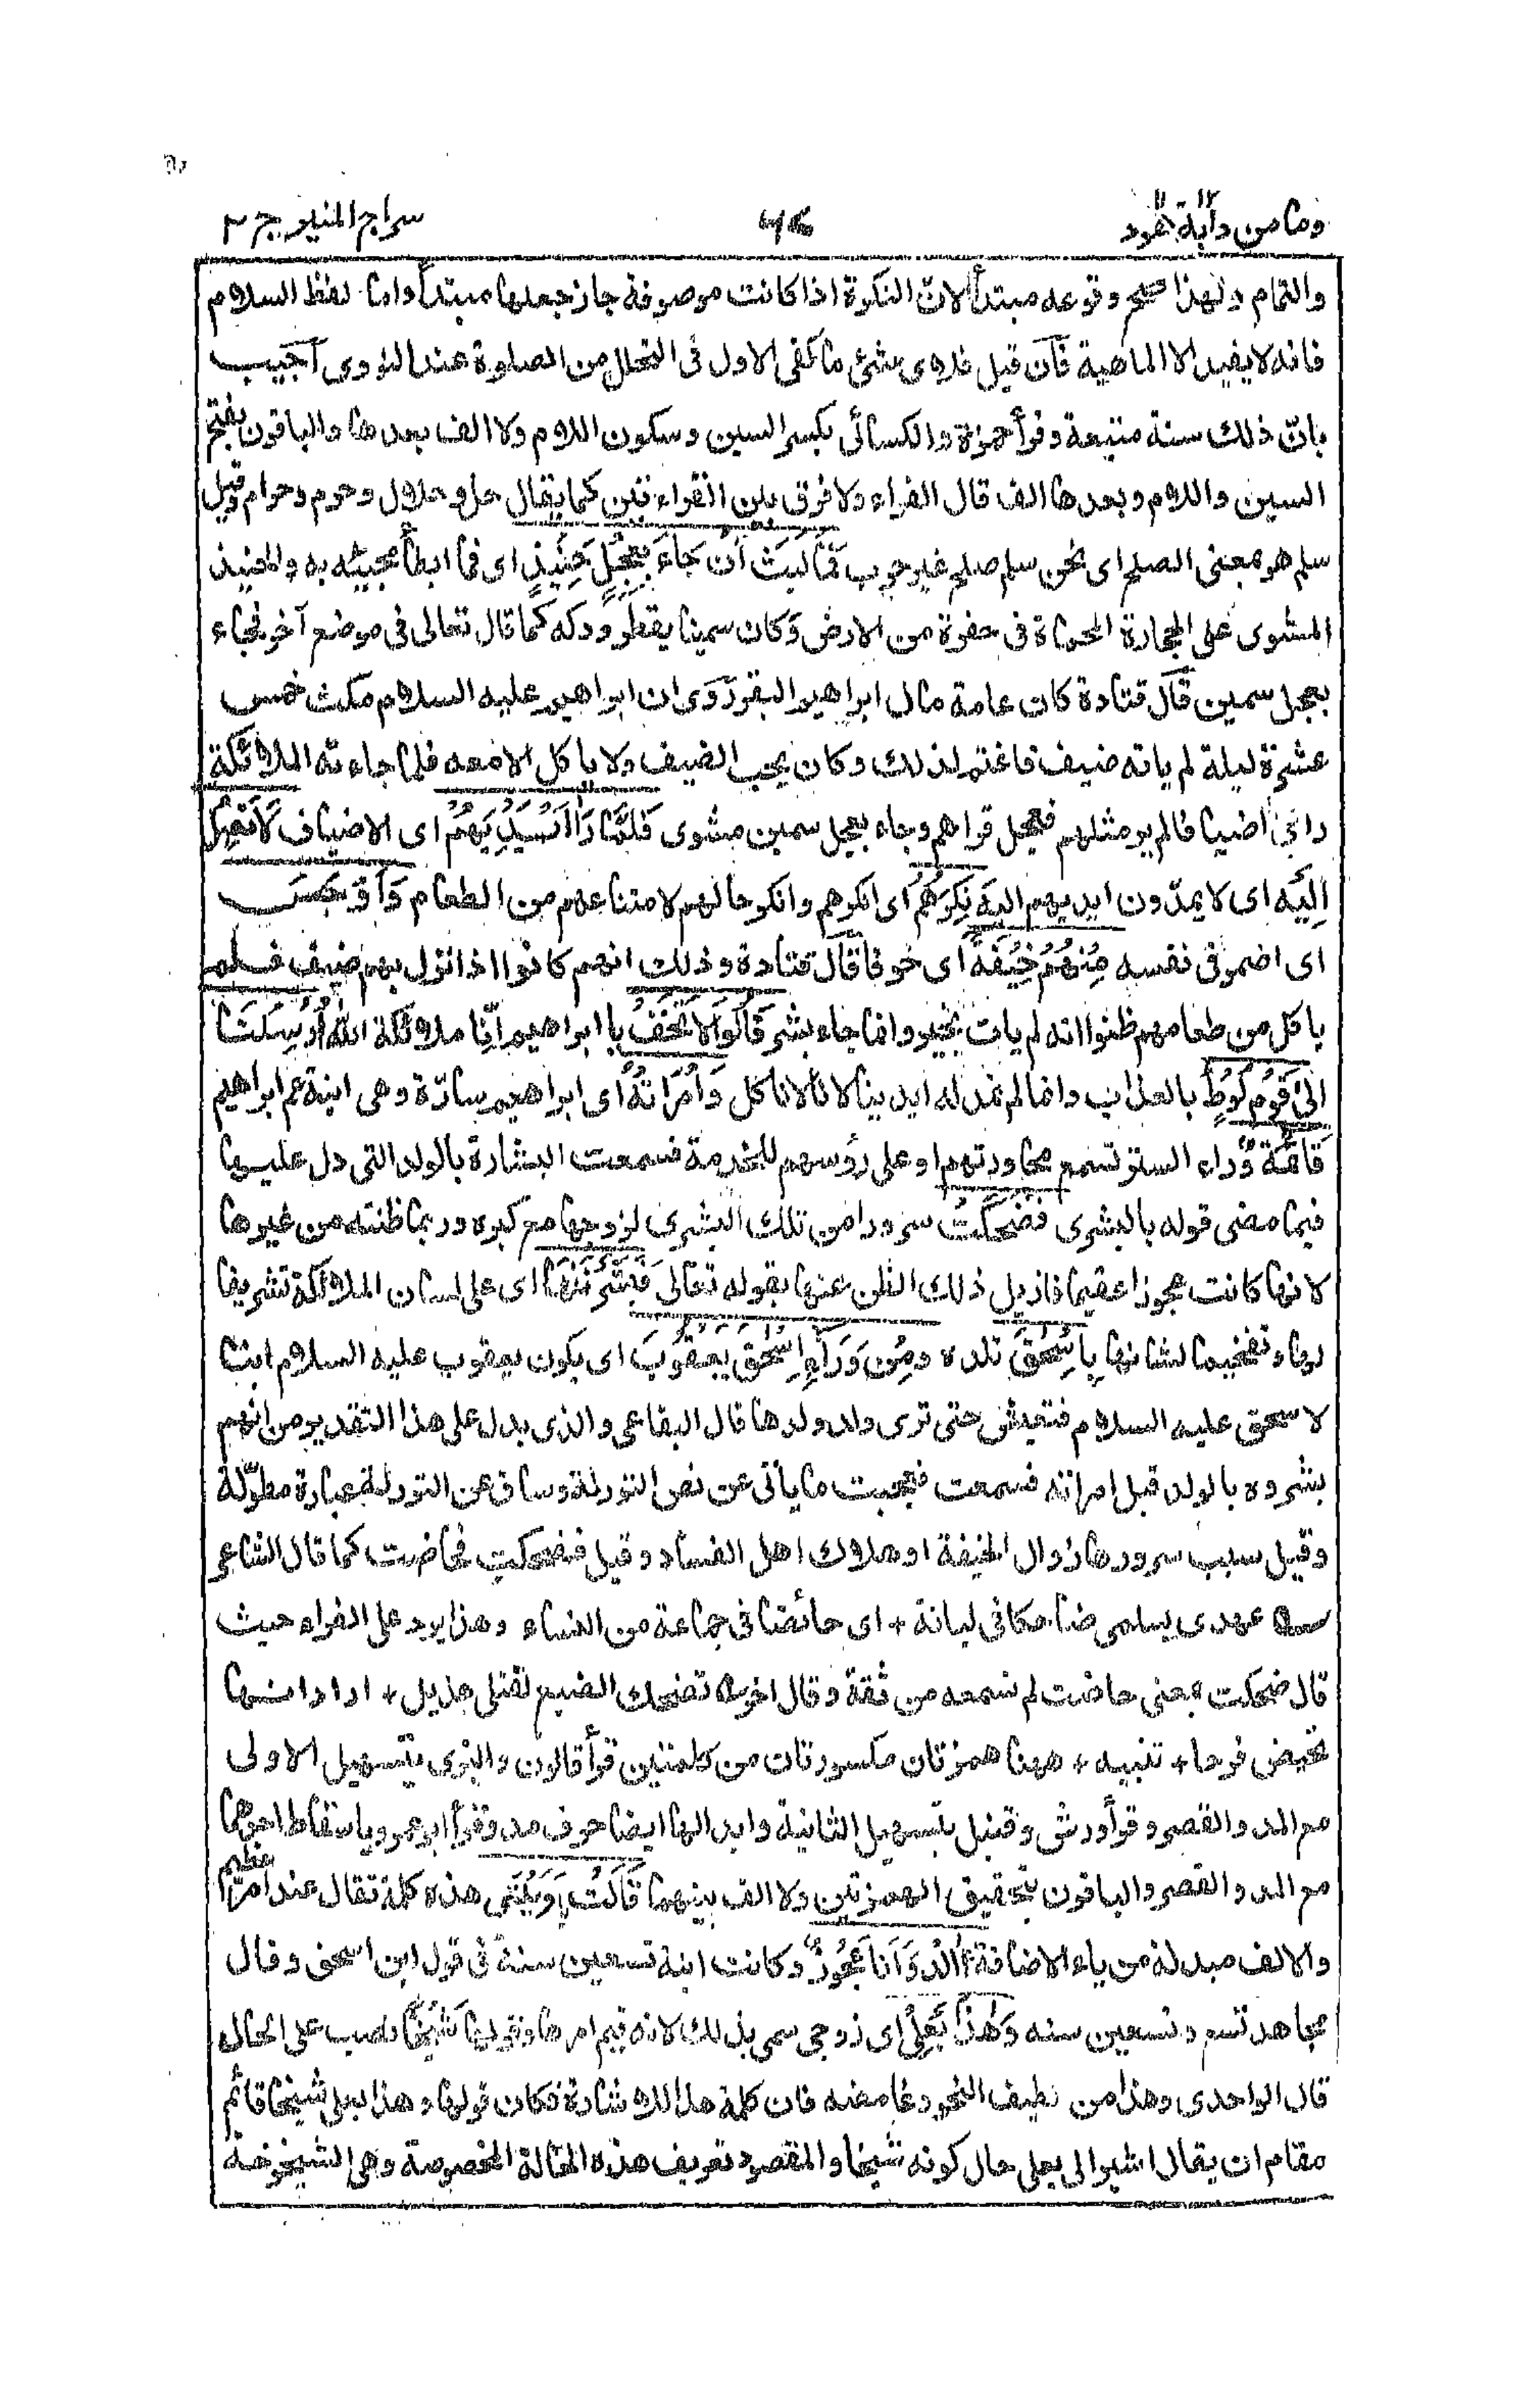 وما من دآبة ١٢ هود
٦٤
سراج المنير ج ٢
والتمام ولهذا صح وقوعه مبتدأ لانّ النكرة اذا كانت موصوفة جاز جعلها مبتدأ واما لفظ السلام
فانه لا يفيد الا الماهية فان قيل فلاى شئ ما كفى الاول فى التحلل من الصلوة عند النووى اجيب
بانّ ذلك سنة متبعة وقرأ حمزة والكسائى بكسر السين وسكون اللام ولا الف بعدها والباقون بفتح
السين واللام وبعدها الف قال الفراء ولا فرق بين القراءتين كما يقال حل وحلال وحرم وحرام وقيل
سلم هو بمعنى الصلح اى نحن سلم صلح غير حرب فَمَا لَبِثَ اَنْ جَاءَ بِعِجْلٍ حَنِيْذٍ اى فما ابطأ مجيئه به والحنيذ
المشوى على الحجارة المحماة فى حفرة من الارض وكان سمينا يقطر ودكه كما قال تعالى فى موضع آخر فجاء
بعجل سمين قال قتادة كان عامة مال ابراهيم البقر روى ان ابراهيم عليه السلام مكث خمس
عشرة ليلة لم ياته ضيف فاغتم لذلك وكان يحب الضيف ولا ياكل الا معه فلما جاءته الملائكة
راى اضيافا لم ير مثلهم فعجل قراهم وجاء بعجل سمين مشوى فَلَمَّا رَاٰ اَيْدِيَهُمْ اى الاضياف لَا تَصِلُ
اِلَيْهِ اى لا يمدّون ايديهم اليه نَكِرَهُمْ اى انكرهم وانكر حالهم لامتناعهم من الطعام وَاَوْجَسَ
اى اضمر فى نفسه مِنْهُمْ خِيْفَةً اى خوفا قال قتادة وذلك انهم كانوا اذا نزل بهم ضيف فلم
ياكل من طعامهم ظنوا انه لم يات بخير وانما جاء بشر قَالُوْا لَا تَخَفْ يا ابراهيم اِنَّا ملائكة الله اُرْسِلْنَا
اِلٰى قَوْمِ لُوْطٍ بالعذاب وانما لم نمد له ايدينا لانا لا ناكل وَامْرَاَتُهٗ اى ابراهيم سارّة وهى ابنة عم ابراهيم
قَائِمَةٌ وراء الستر تسمع محاورتهم او على رؤسهم للخدمة فسمعت البشارة بالولد التى دل عليها
فيما مضى قوله بالبشرى فَضَحِكَتْ سرورا من تلك البشرى لزوجها مع كبره وربما ظنته من غيرها
لانها كانت عجوزا عقيما فازيل ذلك الظن عنها بقوله تعالى فَبَشَّرْنٰهَا اى على لسان الملائكة تشريفا
لها وتفخيما لشانها بِاِسْحٰقَ تلده وَمِنْ وَرَاءِ اِسْحٰقَ يَعْقُوْبَ اى يكون يعقوب عليه السلام ابنا
لاسحق عليه السلام فتعيش حتى ترى ولد ولدها قال البقاعى والذى يدل على هذا التقدير من انهم
بشروه بالولد قبل امراته فسمعت فعجبت ما ياتى عن نص التورلة وساق عن التورلة عبارة مطوّلة
وقيل سبب سرورها زوال الخيفة او هلاك اهل الفساد وقيل فضحكت فحاضت كما قال الشاعر
سه عهدى بسلمى ضاحكا فى لبانة + اى حائضا فى جماعة من النساء وهذا يرد على الفراء حيث
قال ضحكت بمعنى حاضت لم نسمعه من ثقة وقال اخر سه تضحك الضبع لقتلى هذيل + اراد انها
تحيض فرحا + تنبيه + ههنا همزتان مكسورتان من كلمتين قرأ قالون والبزى بتسهيل الاولى
مع المد والقصر وقرأ ورش وقنبل بتسهيل الثانية وابدالها ايضا حرف مد وقرأ ابو عمرو باسقاط احدهما
مع المد والقصر والباقون بتحقيق الهمزتين ولا الف بينهما قَالَتْ يٰوَيْلَتٰى هذه كلمة تقال عند امر عظيم
والالف مبدلة من ياء الاضافة ءَاَلِدُ وَاَنَا عَجُوْزٌ وكانت ابنة تسعين سنة فى قول ابن اسحق وقال
مجاهد تسع وتسعين سنه وَهٰذَا بَعْلِىْ اى زوجى سمى بذلك لانه قيم امرها وقولها شَيْخًا نصب على الحال
قال الواحدى وهذا من لطيف النحو وغامضه فان كلمة هذا للاشارة فكان قولها وهذا بعلى شيخا قائم
مقام ان يقال اشير الى بعلى حال كونه شيخا والمقصود تعريف هذه الحالة المخصوصة وهى الشيخوخة